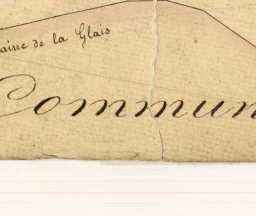 aine de la Glais
Commun